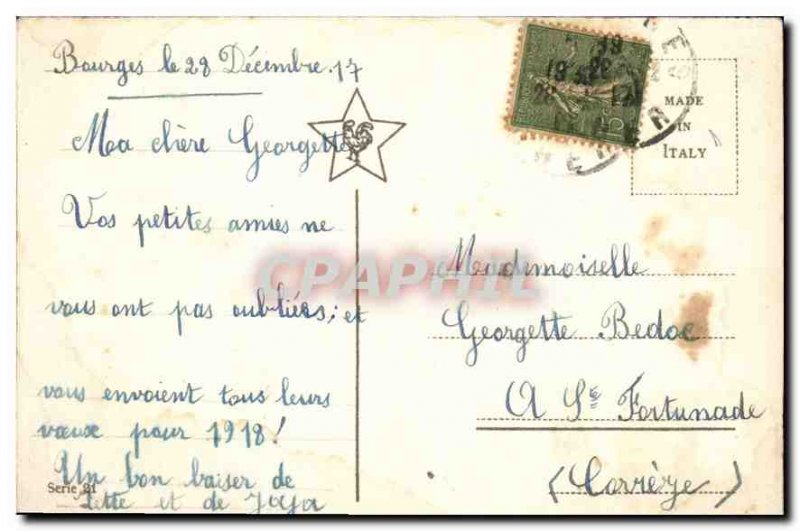 Bourges le 28 Décembre 17
Ma chère Georgette
Vos petites amies ne
vous ont pas oubliées; et
vous envoient tous leurs
vœux pour 1918!
Un bon baiser de
et de
Serie 81
15
MADE
IN
ITALY
CPAPHIL
Mademoiselle
Georgette Bedoc
A Ste Fortunade
(Corrèze)